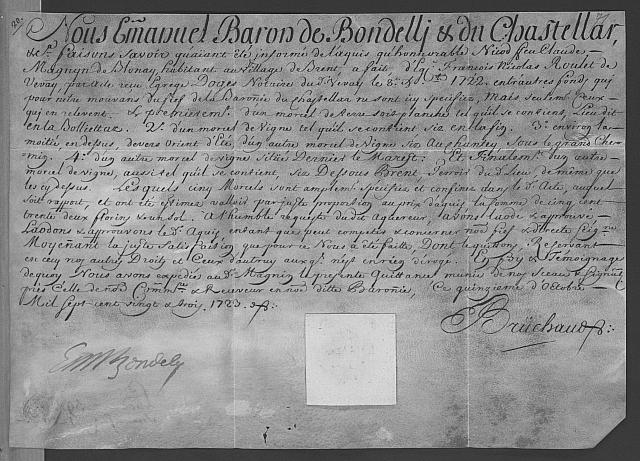 Nous Emanuel Baron de Bondelj & du Chastellar,
&c.ª faisons savoir qu'aiant été informé de l'aquis qu'honnorable Nicod feu Claude
Magnyn de Blonay habitant au village de Brent, a fait, d'h.e François Nicolas Roulet de
Vevay, par Acte reçu Egrege Notaire du d.t Vevay le 8.e 1722. entr'autres fonds, qui
pour n'être mouvans du fief de la Baronie du Chastellar ne sont icy specifiés, Mais seulem.t Ceux
qui en relevent. & premierem.t d'un morcel de terre sois planche tel qu'il se contient, Lieu dit
en la 2.º d'un morcel de Vigne tel qu'il se contient size en la fin. 3.º environ la
moitié en dessus, devers Orient d'Eté, d'un autre morcel de Vigne size Au Sous le grand Chemin. 4.º d'un autre morcel de vignes Dernier le Marest: Et Finalem.t d'un autre
morcel de vigne, aussi tel qu'il se contient, size Dessous Brent, Terroir du d.t Lieu, de même que
les cy dessus. Lesquels cinq Morcels sont amplem.t specifiés et confinés dans le d.t Acte, auquel
soit raport, et ont été estimez valoir par juste proposition au prix d'aquis la somme de cinq cent
trente deux florins & un sol. A l'humble requeste du d.t Aquereur, l'avons laodé & aprouvé,
Laodons & aprouvons le d.t Aquis entant que peut competer & concerner nôd. fief & directe Seig.rie
Moyénant la juste Satisfaction que pour ce Nous à été faitte, Dont le quittons, Reservant
en cecy nos autres Droits et Ceux d'autruy aux q.ls n'est en rien déroge. En foy & Temoignage
dequoy Nous avons expedié au d.t Magnin le presente Quittance munie de nos Sceau & signat.re
prés Celle de nôd. Comm.re & Receveur en nôd ditte Baronie, Ce quinzieme d'Octobre
Mil sept cent vingt & trois, 1723.
EMBondely